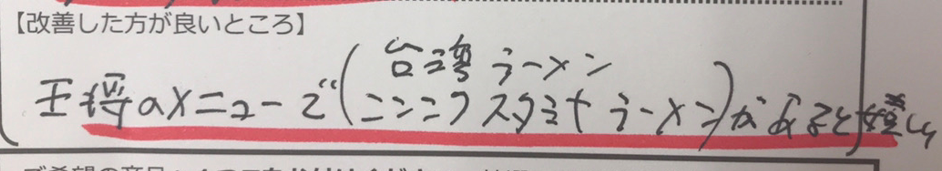 【改善した方が良いところ】
台湾ラーメン
王将のメニューで(ニンニクスタミナラーメン)があると嬉しい